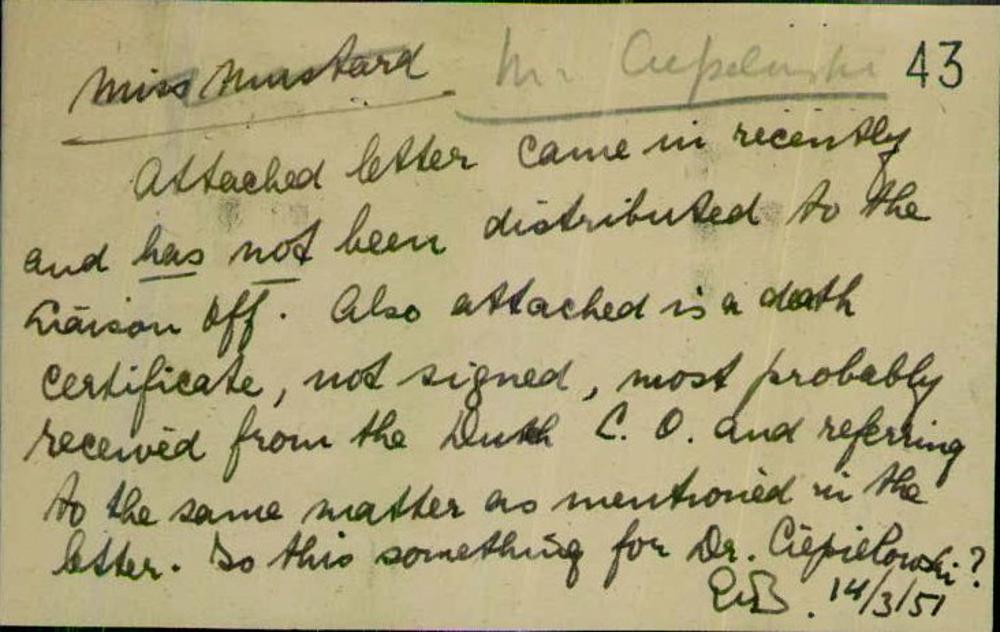 Miss Mustard Mr. Ciepielowski 43
Attached letter came in recently
and has not been distributed to the
Liaison Off. Also attached is a death
certificate, not signed, most probably
received from the Dutch C. O. and referring
to the same matter as mentioned in the
letter. Is this something for Dr. Ciepielowski?
14/3/51